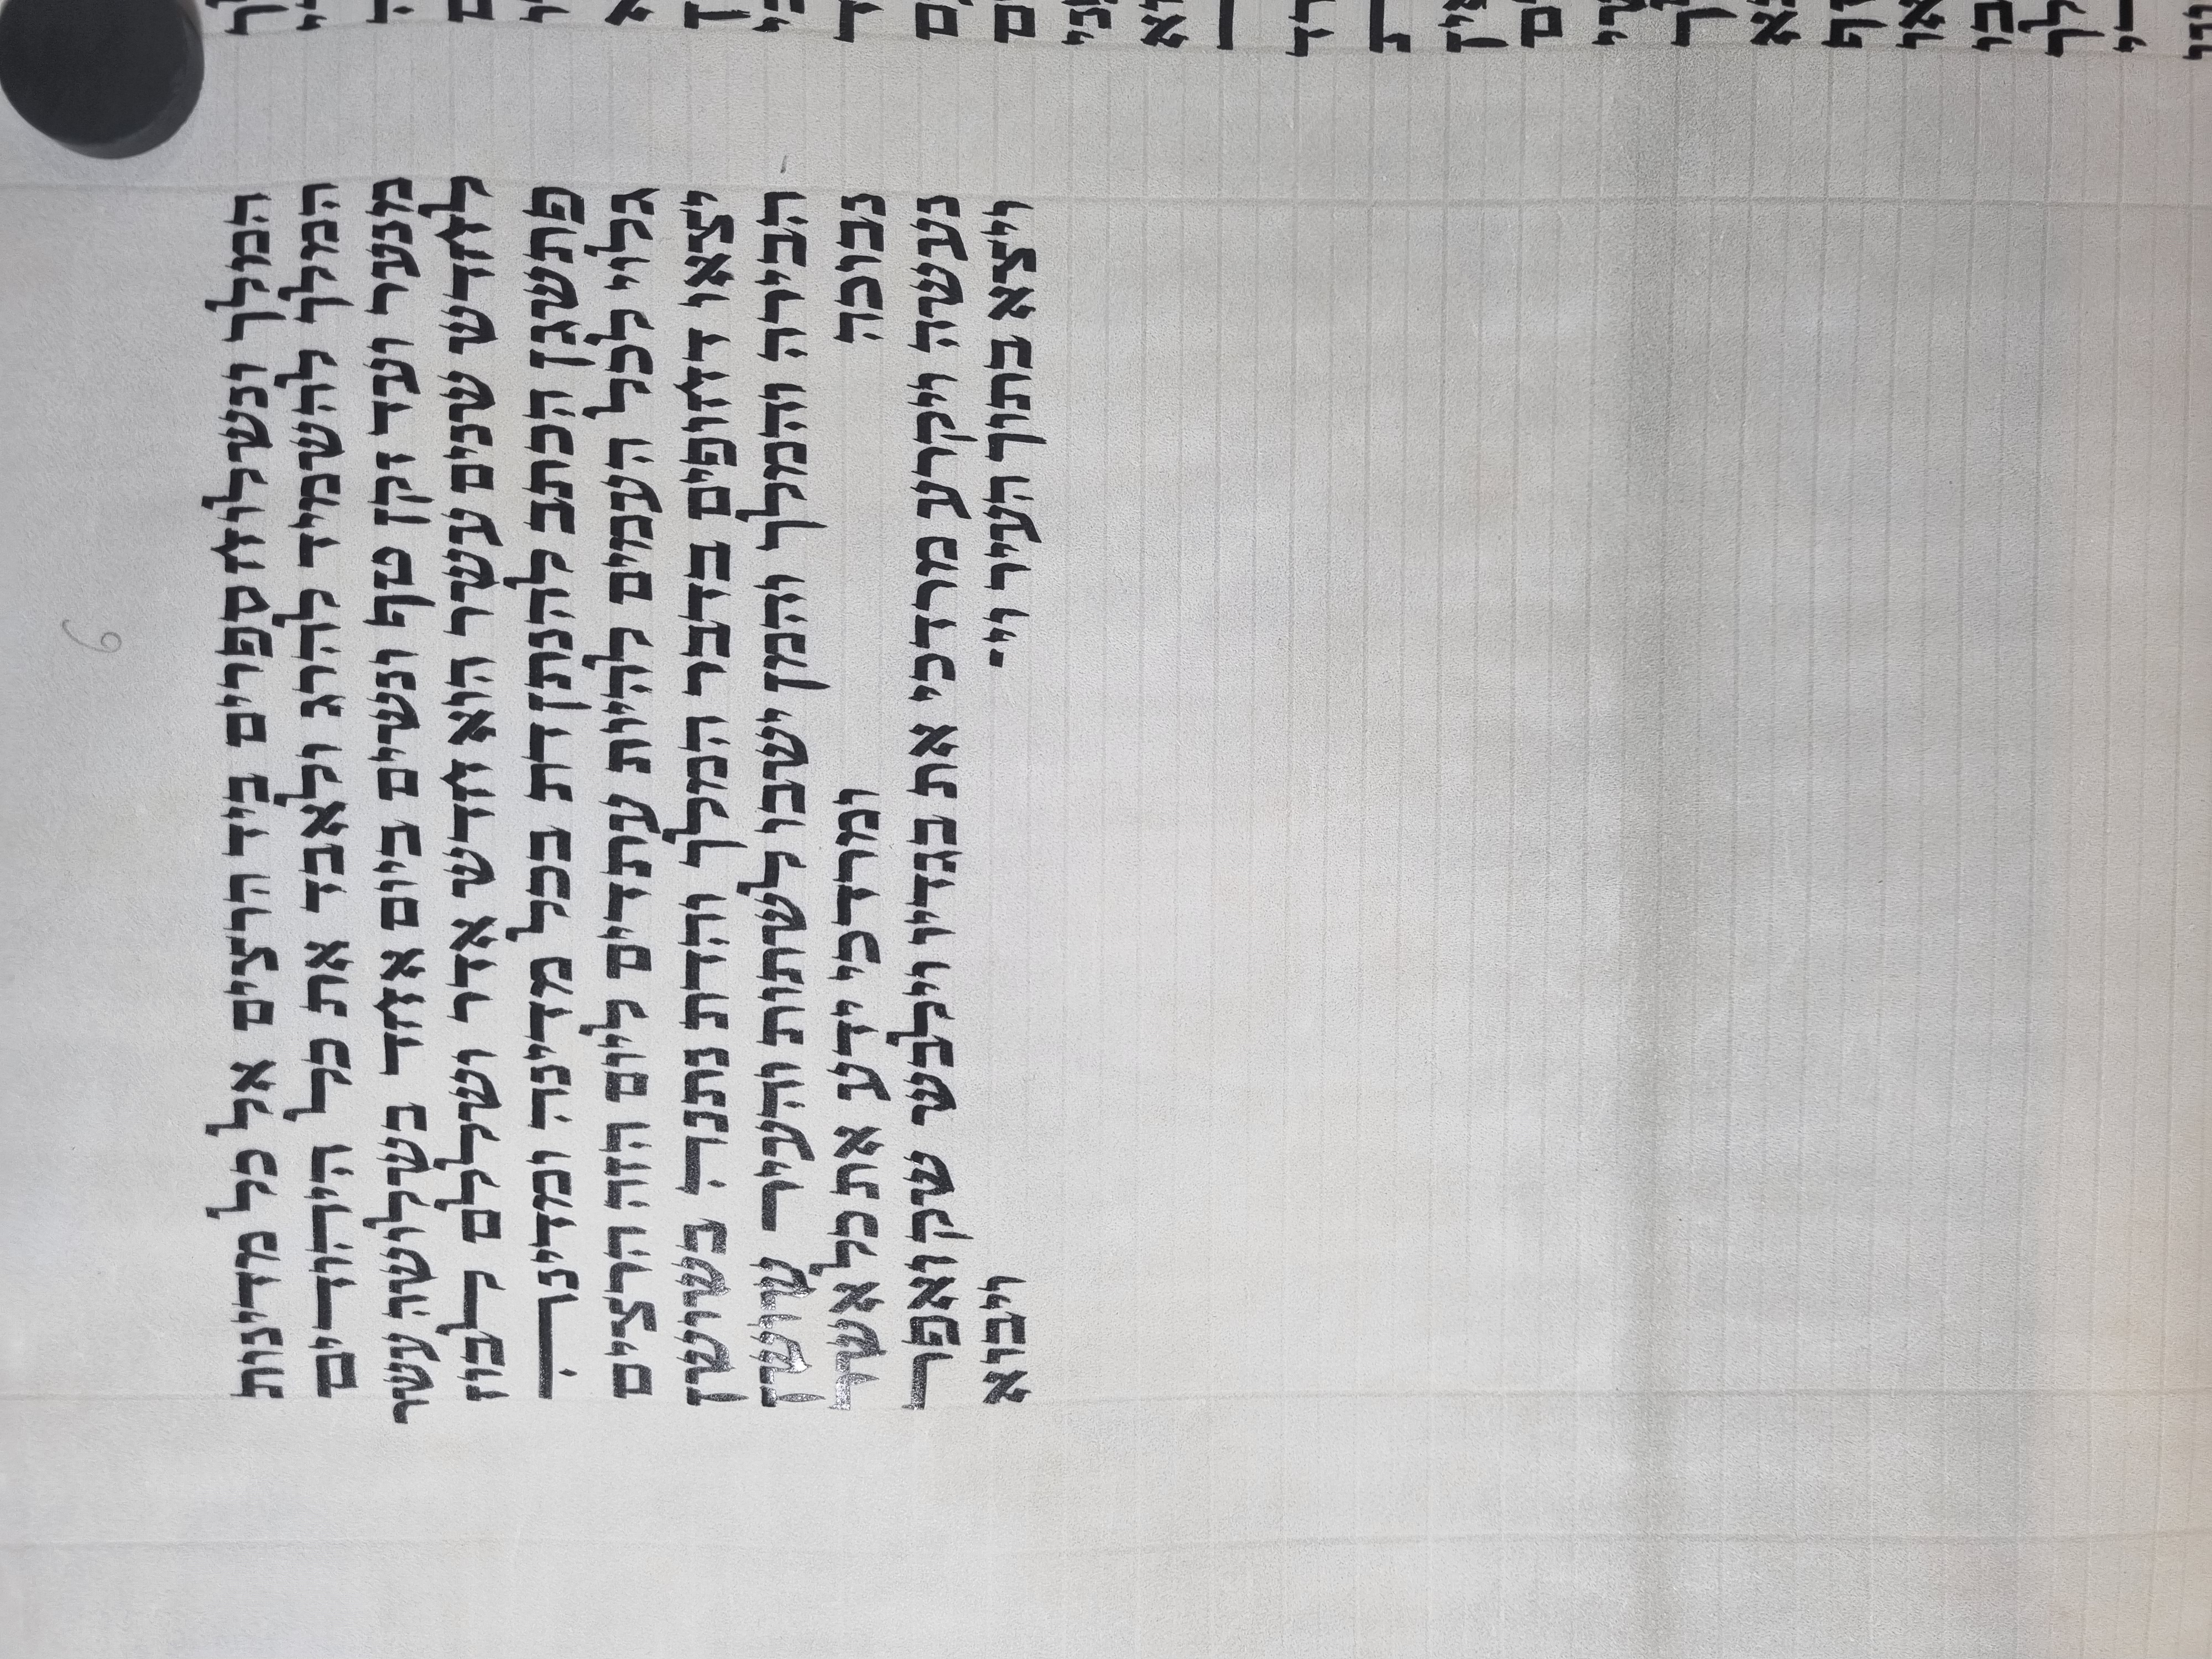 6
המלך ונשלוח ספרים ביד הרצים אל כל מדינות
המלך להשמיד להרג ולאבד את כל היהודים
מנער ועד זקן טף ונשים ביום אחד בשלושה עשר
לחדש שנים עשר הוא חדש אדר ושללם לבוז
פתשגן הכתב להנתן דת בכל מדינה ומדינה
גלוי לכל העמים להיות עתדים ליום הזה הרצים
יצאו דחופים בדבר המלך והדת נתנה בשושן
הבירה והמלך והמן ישבו לשתות והעיר שושן
נבוכה ומרדכי ידע את כל אשר
נעשה ויקרע מרדכי את בגדיו וילבש שק ואפר
ויצא בתוך העיר וי־ ויבוא